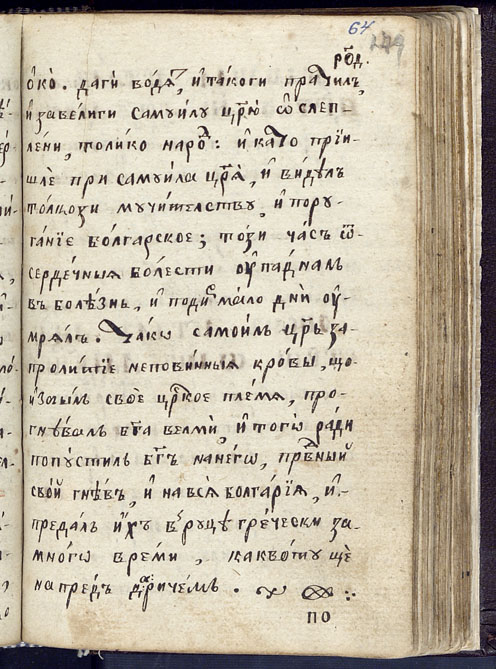 64
149
род.
око̀. даги водѧтъ, и такоги пратилъ,
и завелиги Самуилу цр҃ю ѡслеп-
лени, толико народ: и като прїи-
шле при самуила цр҃ѧ, и видѣлъ
толкози мучителству, и пору-
ганїе болгарское; този часъ ѿ
сердечныѧ болести ꙋпадналъ
въ болѣзнь, и подир мало дни ꙋ-
мрѧлъ. Тако самоилъ цр҃ь за-
пролитїе неповинныѧ кровы, що
изгꙋбилъ свое цр҃кое племѧ, про-
гнѣвалъ бг҃а велми, и тогѡ ради
попꙋстилъ бг҃ъ нанегѡ, првный
свой гнѣвъ, и на всѧ болгарїѧ, и-
предалъ ихъ в рꙋцѣ гречески за-
многѡ времи, каквоту ще
напредъ да ричемъ.
по